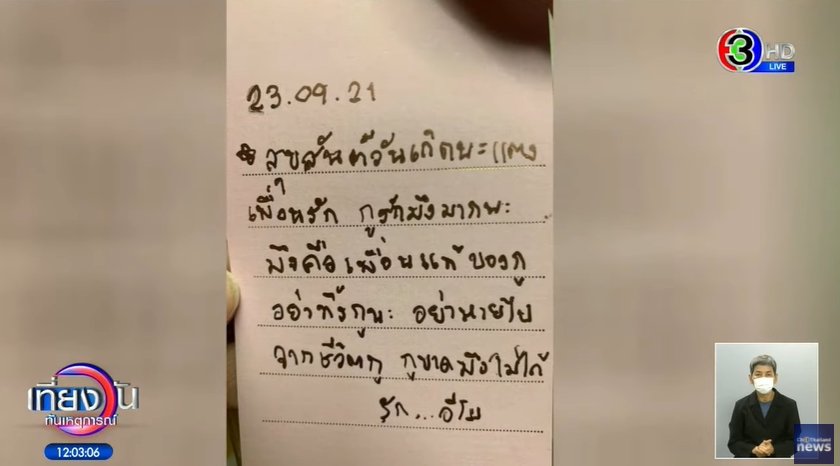 3 HD
LIVE
23.09.21
สุขสันต์วันเกิดนะแตง
เพื่อนรัก กูรักมึงมากนะ
มึงคือเพื่อนแท้ของกู
อย่าทิ้งกูนะ อย่าหายไป
จากชีวิตกู กูขาดมึงไม่ได้
รัก...อีโม
เที่ยงวัน
ทันเหตุการณ์
12:03:06
Ch3Thailand
news